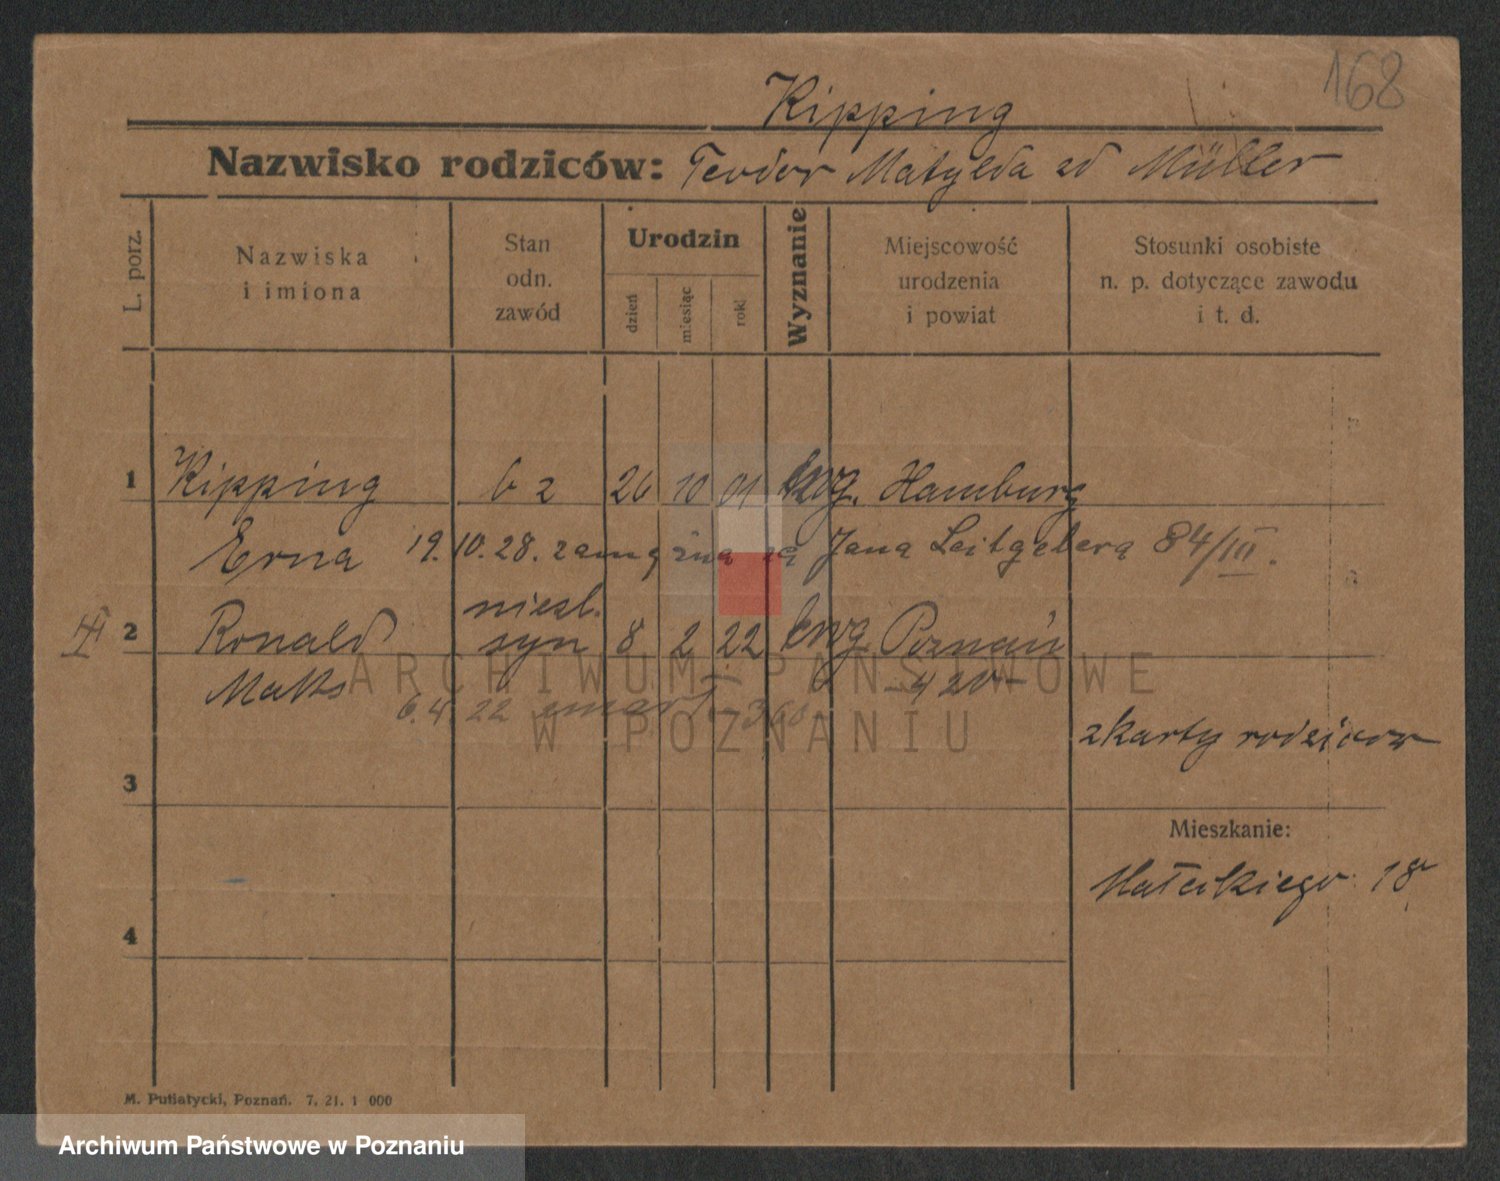 168
Kipping
Nazwisko rodziców: Teodor Matylda zd Müller
L. porz.
Nazwiska
i imiona
Stan
odn.
zawód
Urodzin
dzień
miesiąc
rok
Wyznanie
Miejscowość
urodzenia
i powiat
Stosunki osobiste
n. p. dotyczące zawodu
i t. d.
1 Kipping bz 26 10 01 ewg. Hamburg
Erna 19.10.28. zamężna za Jana Leitgebera 84/III.
niesl.
2 Ronald syn 8 2 22 ewg Poznań
Maks
6.4.22 zmarł
z karty rodziców
3
Mieszkanie:
Małeckiego 18
4
M. Putiatycki, Poznań. 7. 21. 1 000
ARCHIWUM PAŃSTWOWE
W POZNANIU
Archiwum Państwowe w Poznaniu